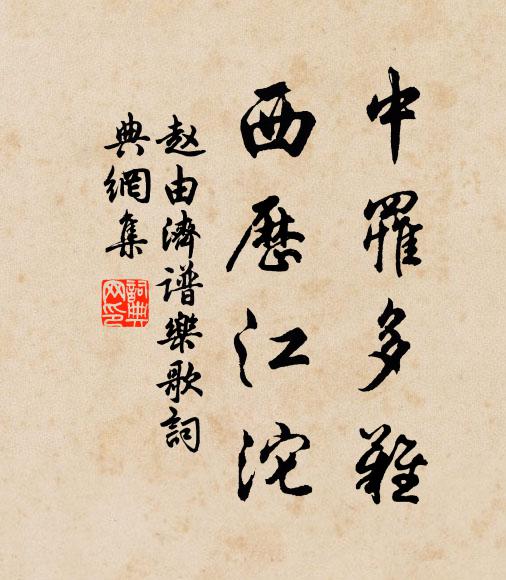 中罹多難
西歷江沱
赵由濟谱樂歌詞
典網集
詞典網印